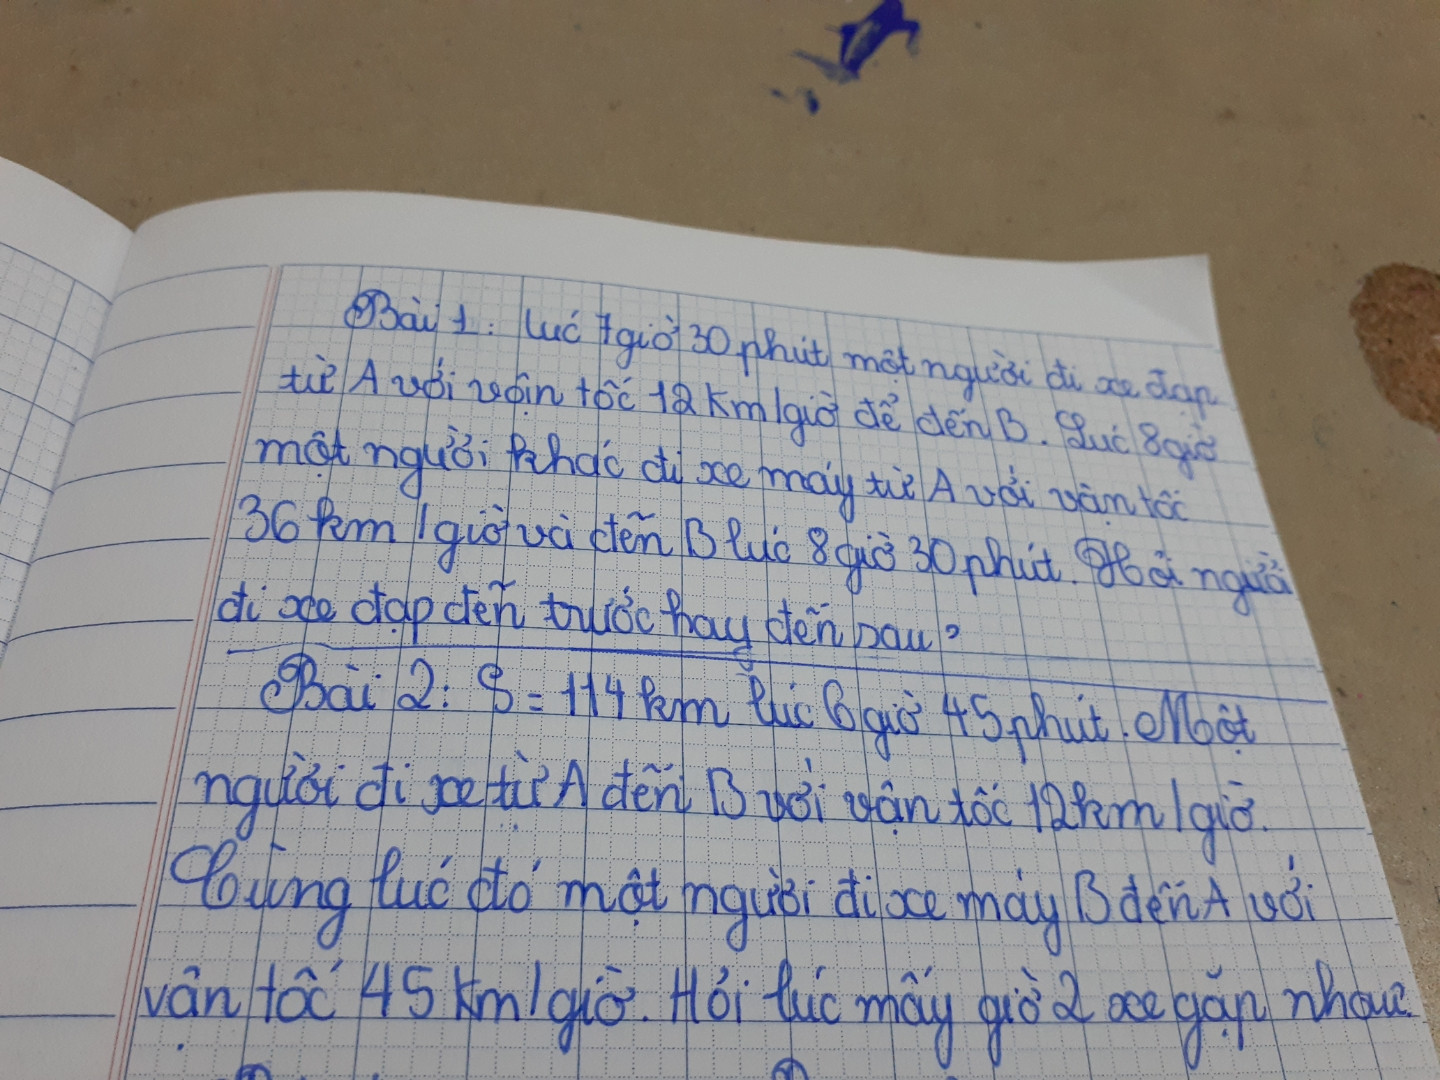 Bài 1: lúc 7giờ 30 phút một người đi xe đạp
từ A với vận tốc 12 km/giờ để đến B. Lúc 8giờ
một người khác đi xe máy từ A với vận tốc
36 km/giờ và đến B lúc 8 giờ 30 phút. Hỏi người
đi xe đạp đến trước hay đến sau?
Bài 2: S = 114 km lúc 6 giờ 45 phút. Một
người đi xe từ A đến B với vận tốc 12 km/giờ.
Cùng lúc đó một người đi xe máy B đến A với
vận tốc 45 km/giờ. Hỏi lúc mấy giờ 2 xe gặp nhau